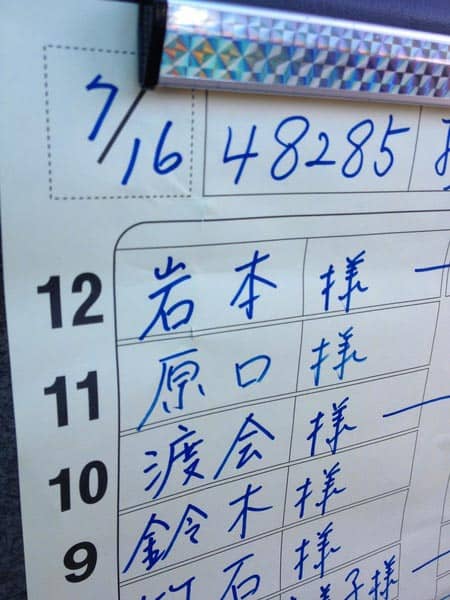 7/16 48285
12 岩本 様
11 原口 様
10 渡会 様
9 鈴木 様
石 様
子様